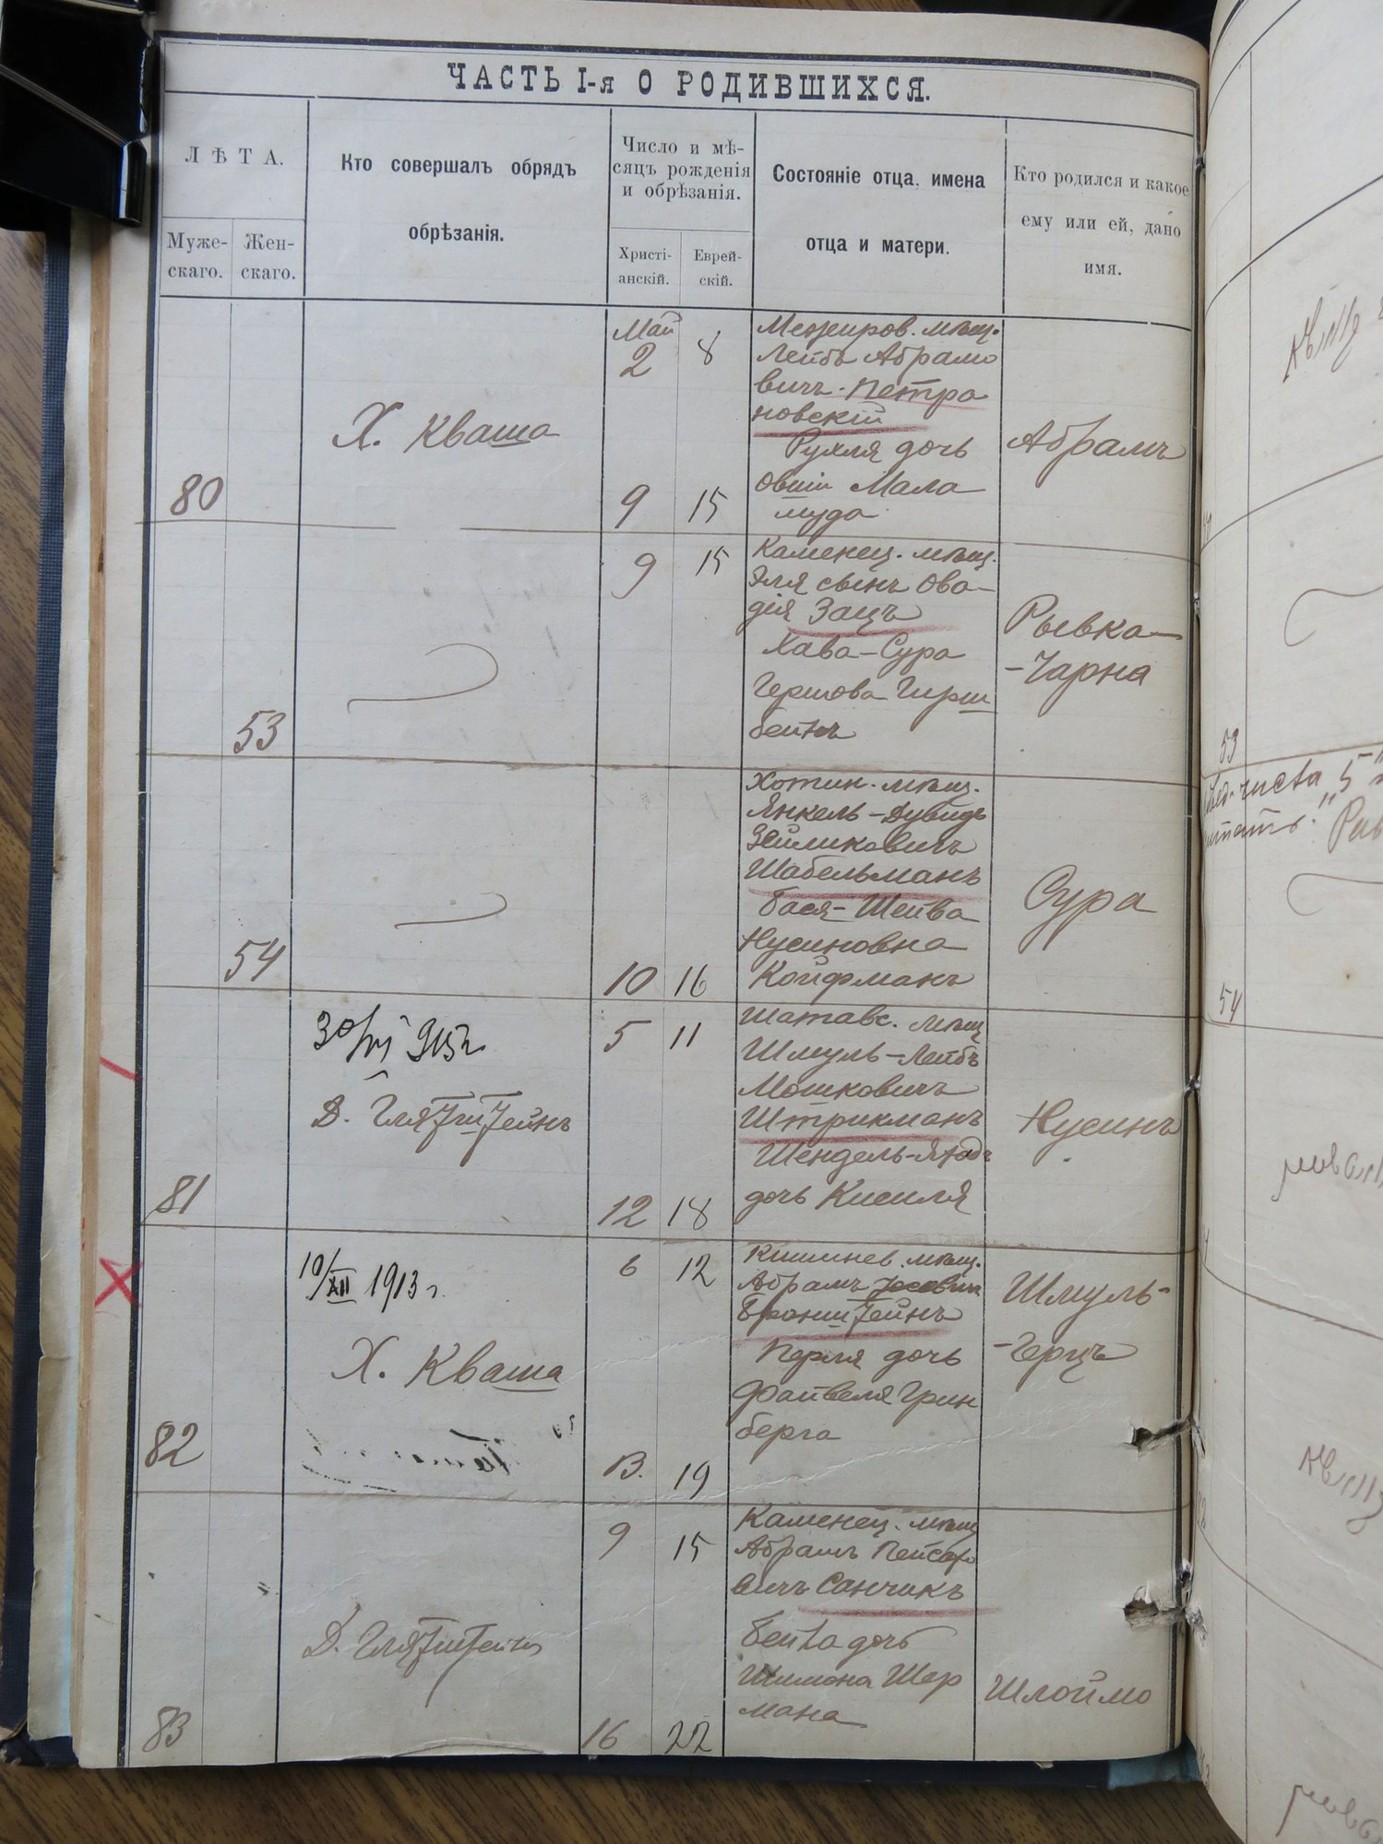 ЧАСТЬ I-я О РОДИВШИХСЯ.
ЛѢТА.
Муже-
скаго.
Жен-
скаго.
Кто совершалъ обрядъ
обрѣзанія.
Число и мѣ-
сяцъ рожденія
и обрѣзанія.
Христі-
анскій.
Еврей-
скій.
Состояніе отца, имена
отца и матери.
Кто родился и какое
ему или ей, дано
имя.
80
Х. Кваша
Май
2
8
9
15
Межиров. мѣщ.
Лейбъ Абрамо
вичъ Петра
новскій
Рухля дочь
Овши Мала
муда
Абрамъ
53
9
15
Каменец. мѣщ.
Эля сынъ Ова-
дія Зацъ
Хава-Сура
Гершова Гирш
бейнъ
Рывка-
-Чарна
54
10
16
Хотин. мѣщ.
Янкель-Дувидъ
Зейликовичъ
Шабельманъ
Бася-Шейва
Нусиновна
Койфманъ
Сура
81
Д. Гляйштейнъ
5
11
12
18
Шатавс. мѣщ
Шмуль-Лейбъ
Мошковичъ
Штрикманъ
Шендель-
дочь Кисиля
Нусинъ
82
10/XII 1913 г.
Х. Кваша
6
12
13.
19
Кишинев. мѣщ.
Абрамъ Іосевич
Бронштейнъ
Перля дочь
Файвеля Грин
берга
Шмуль-
-Герцъ
83
Д. Гляйштейнъ
9
15
16
22
Каменец. мѣщ
Абрамъ Пейсахо
вичъ Санчикъ
Бейла дочь
Шимона Шер
мана
Шлоймо
53
54